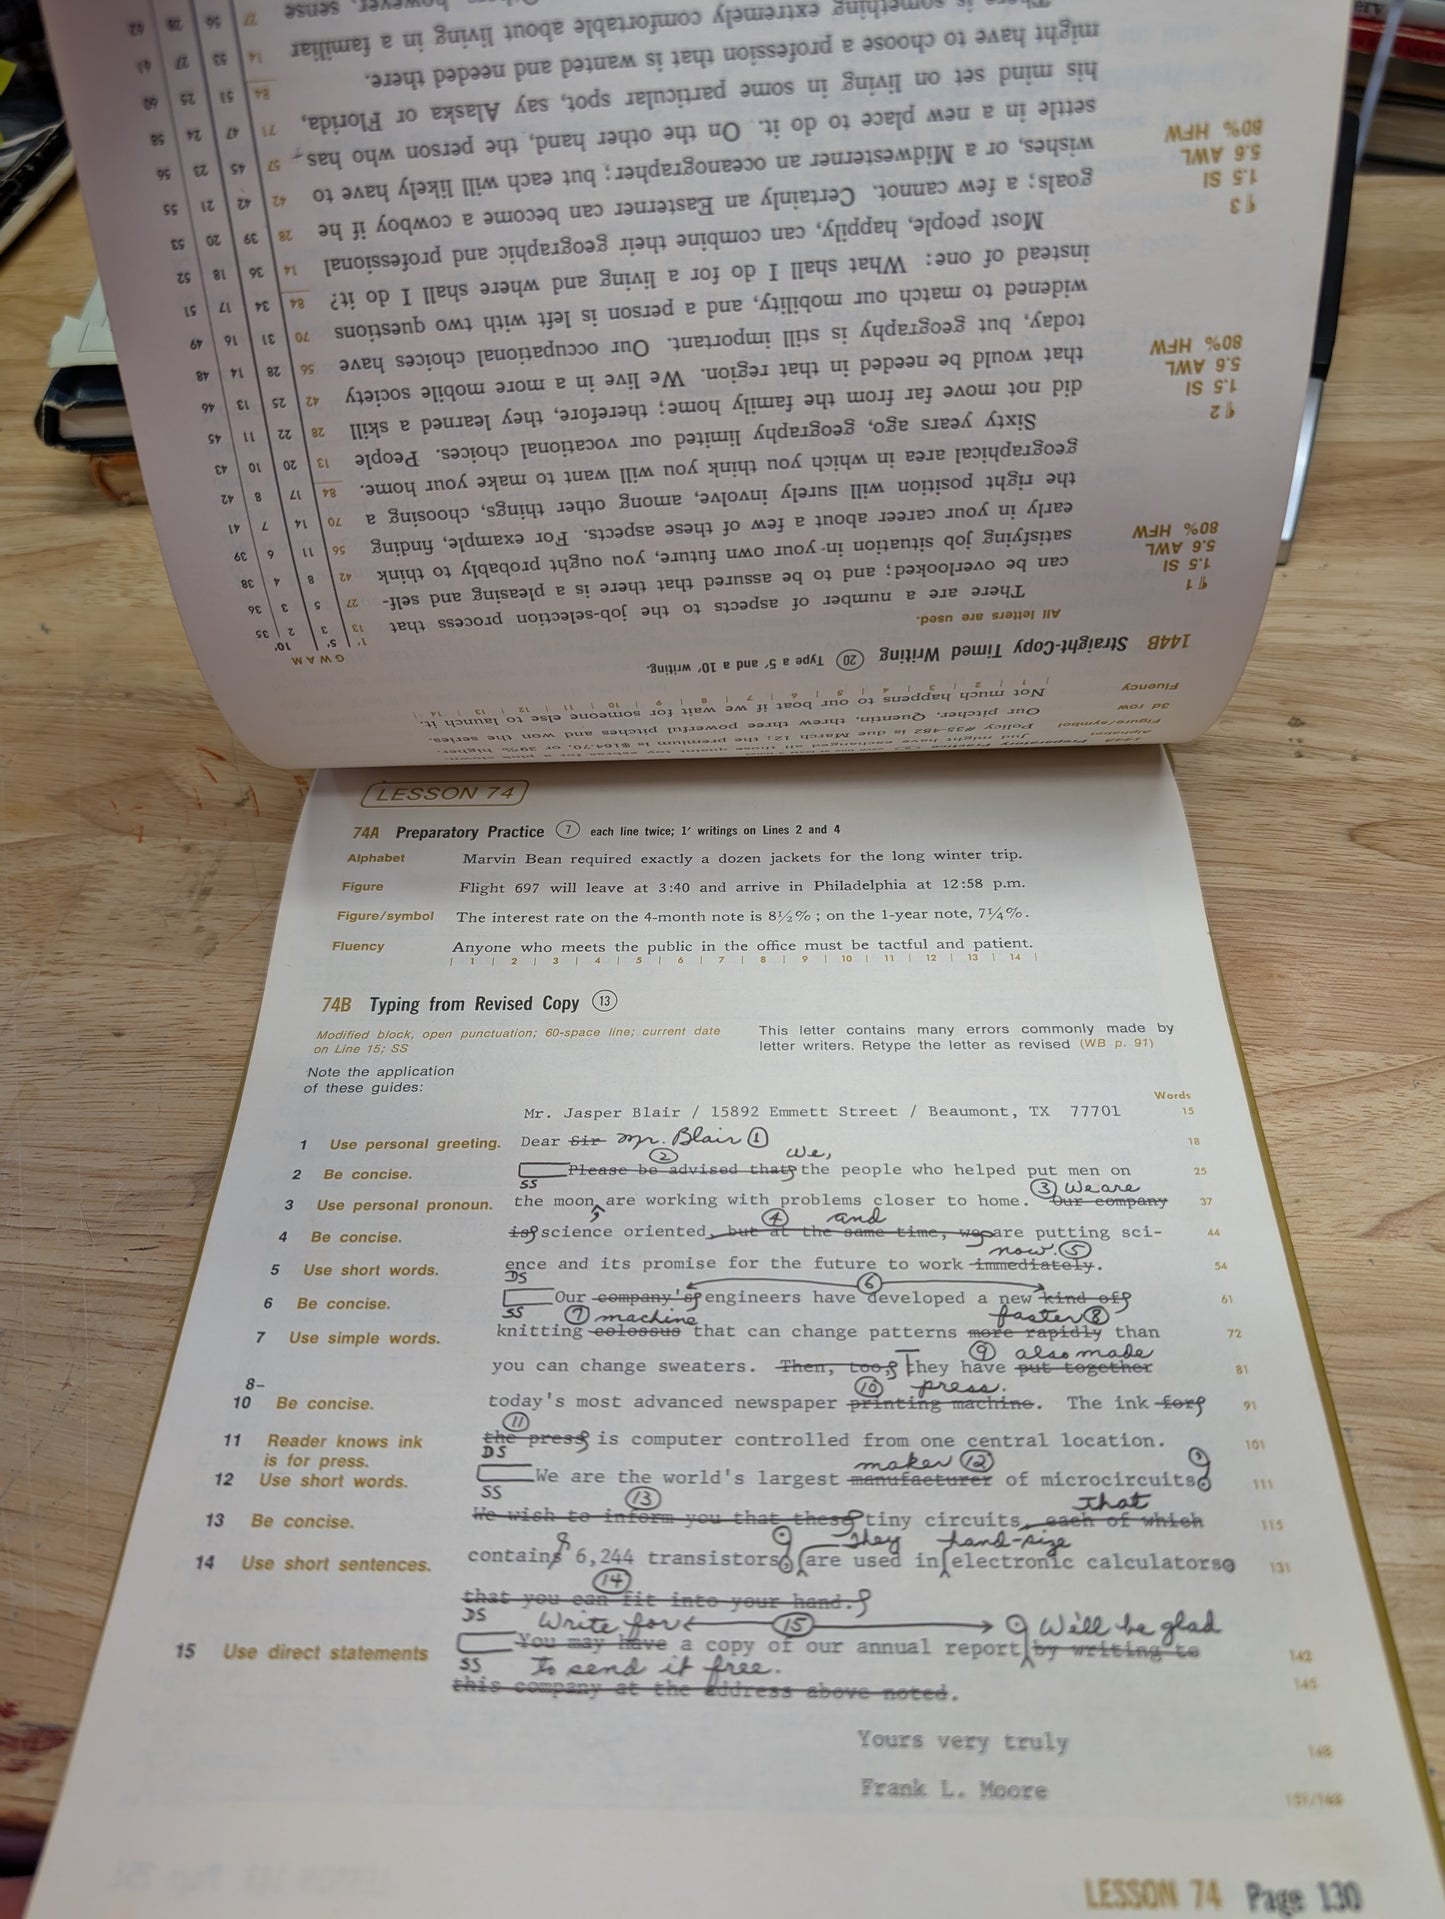 LESSON 74
74A Preparatory Practice 7 each line twice; 1' writings on Lines 2 and 4
Alphabet Marvin Bean required exactly a dozen jackets for the long winter trip.
Figure Flight 697 will leave at 3:40 and arrive in Philadelphia at 12:58 p.m.
Figure/symbol The interest rate on the 4-month note is 8½%; on the 1-year note, 7¼%.
Fluency Anyone who meets the public in the office must be tactful and patient.
| 1 | 2 | 3 | 4 | 5 | 6 | 7 | 8 | 9 | 10 | 11 | 12 | 13 | 14 |
74B Typing from Revised Copy 13
Modified block, open punctuation; 60-space line; current date
on Line 15; SS
This letter contains many errors commonly made by
letter writers. Retype the letter as revised (WB p. 91)
Note the application
of these guides:
Words
Mr. Jasper Blair / 15892 Emmett Street / Beaumont, TX 77701 15
1 Use personal greeting. Dear Sir Mr. Blair 1 18
2 we,
2 Be concise. SS Please be advised that the people who helped put men on 25
3 We are
3 Use personal pronoun. the moon, are working with problems closer to home. Our company 37
4 and
4 Be concise. is science oriented, but at the same time, we are putting sci- 44
now. 5
5 Use short words. ence and its promise for the future to work immediately. 54
DS 6
6 Be concise. SS Our company's engineers have developed a new kind of 61
7 machine faster 8
7 Use simple words. knitting colossus that can change patterns more rapidly than 72
9 also made
you can change sweaters. Then, too, They have put together 81
10 press.
8-
10 Be concise. today's most advanced newspaper printing machine. The ink for 91
11
11 Reader knows ink the press is computer controlled from one central location. 101
is for press.
DS maker 12
12 Use short words. SS We are the world's largest manufacturer of microcircuits. 111
13 that
13 Be concise. We wish to inform you that these tiny circuits, each of which 115
They hand-size
14 Use short sentences. contains 6,244 transistors, are used in electronic calculators. 131
14
that you can fit into your hand.
DS Write for 15 We'll be glad
15 Use direct statements SS You may have a copy of our annual report by writing to 142
to send it free.
this company at the address above noted. 145
Yours very truly 148
Frank L. Moore 151/168
LESSON 74 Page 130
Alphabet Jud might have exchanged all those quaint toy zebras for a pink clown.
Figure/symbol Policy #35-482 is due March 12; the premium is $164.70, or 39% higher.
3d row Our pitcher, Quentin, threw three powerful pitches and won the series.
Fluency Not much happens to our boat if we wait for someone else to launch it.
| 1 | 2 | 3 | 4 | 5 | 6 | 7 | 8 | 9 | 10 | 11 | 12 | 13 | 14 |
144B Straight-Copy Timed Writing 20 Type a 5' and a 10' writing.
All letters are used.
GWAM
1' 5' 10'
¶ 1
1.5 SI
5.6 AWL
80% HFW
There are a number of aspects to the job-selection process that 13 3 2 35
can be overlooked; and to be assured that there is a pleasing and self- 27 5 3 36
satisfying job situation in your own future, you ought probably to think 42 8 4 38
early in your career about a few of these aspects. For example, finding 56 11 6 39
the right position will surely involve, among other things, choosing a 70 14 7 41
geographical area in which you think you will want to make your home. 84 17 8 42
¶ 2
1.5 SI
5.6 AWL
80% HFW
Sixty years ago, geography limited our vocational choices. People 13 20 10 43
did not move far from the family home; therefore, they learned a skill 28 22 11 45
that would be needed in that region. We live in a more mobile society 42 25 13 46
today, but geography is still important. Our occupational choices have 56 28 14 48
widened to match our mobility, and a person is left with two questions 70 31 16 49
instead of one: What shall I do for a living and where shall I do it? 84 34 17 51
¶ 3
1.5 SI
5.6 AWL
80% HFW
Most people, happily, can combine their geographic and professional 14 36 18 52
goals; a few cannot. Certainly an Easterner can become a cowboy if he 28 39 20 53
wishes, or a Midwesterner an oceanographer; but each will likely have to 42 42 21 55
settle in a new place to do it. On the other hand, the person who has 57 45 23 56
his mind set on living in some particular spot, say Alaska or Florida, 71 47 24 58
might have to choose a profession that is wanted and needed there. 84 51 25 60
There is something extremely comfortable about living in a familiar 14 53 27 61
however, sense 27 56 28 62